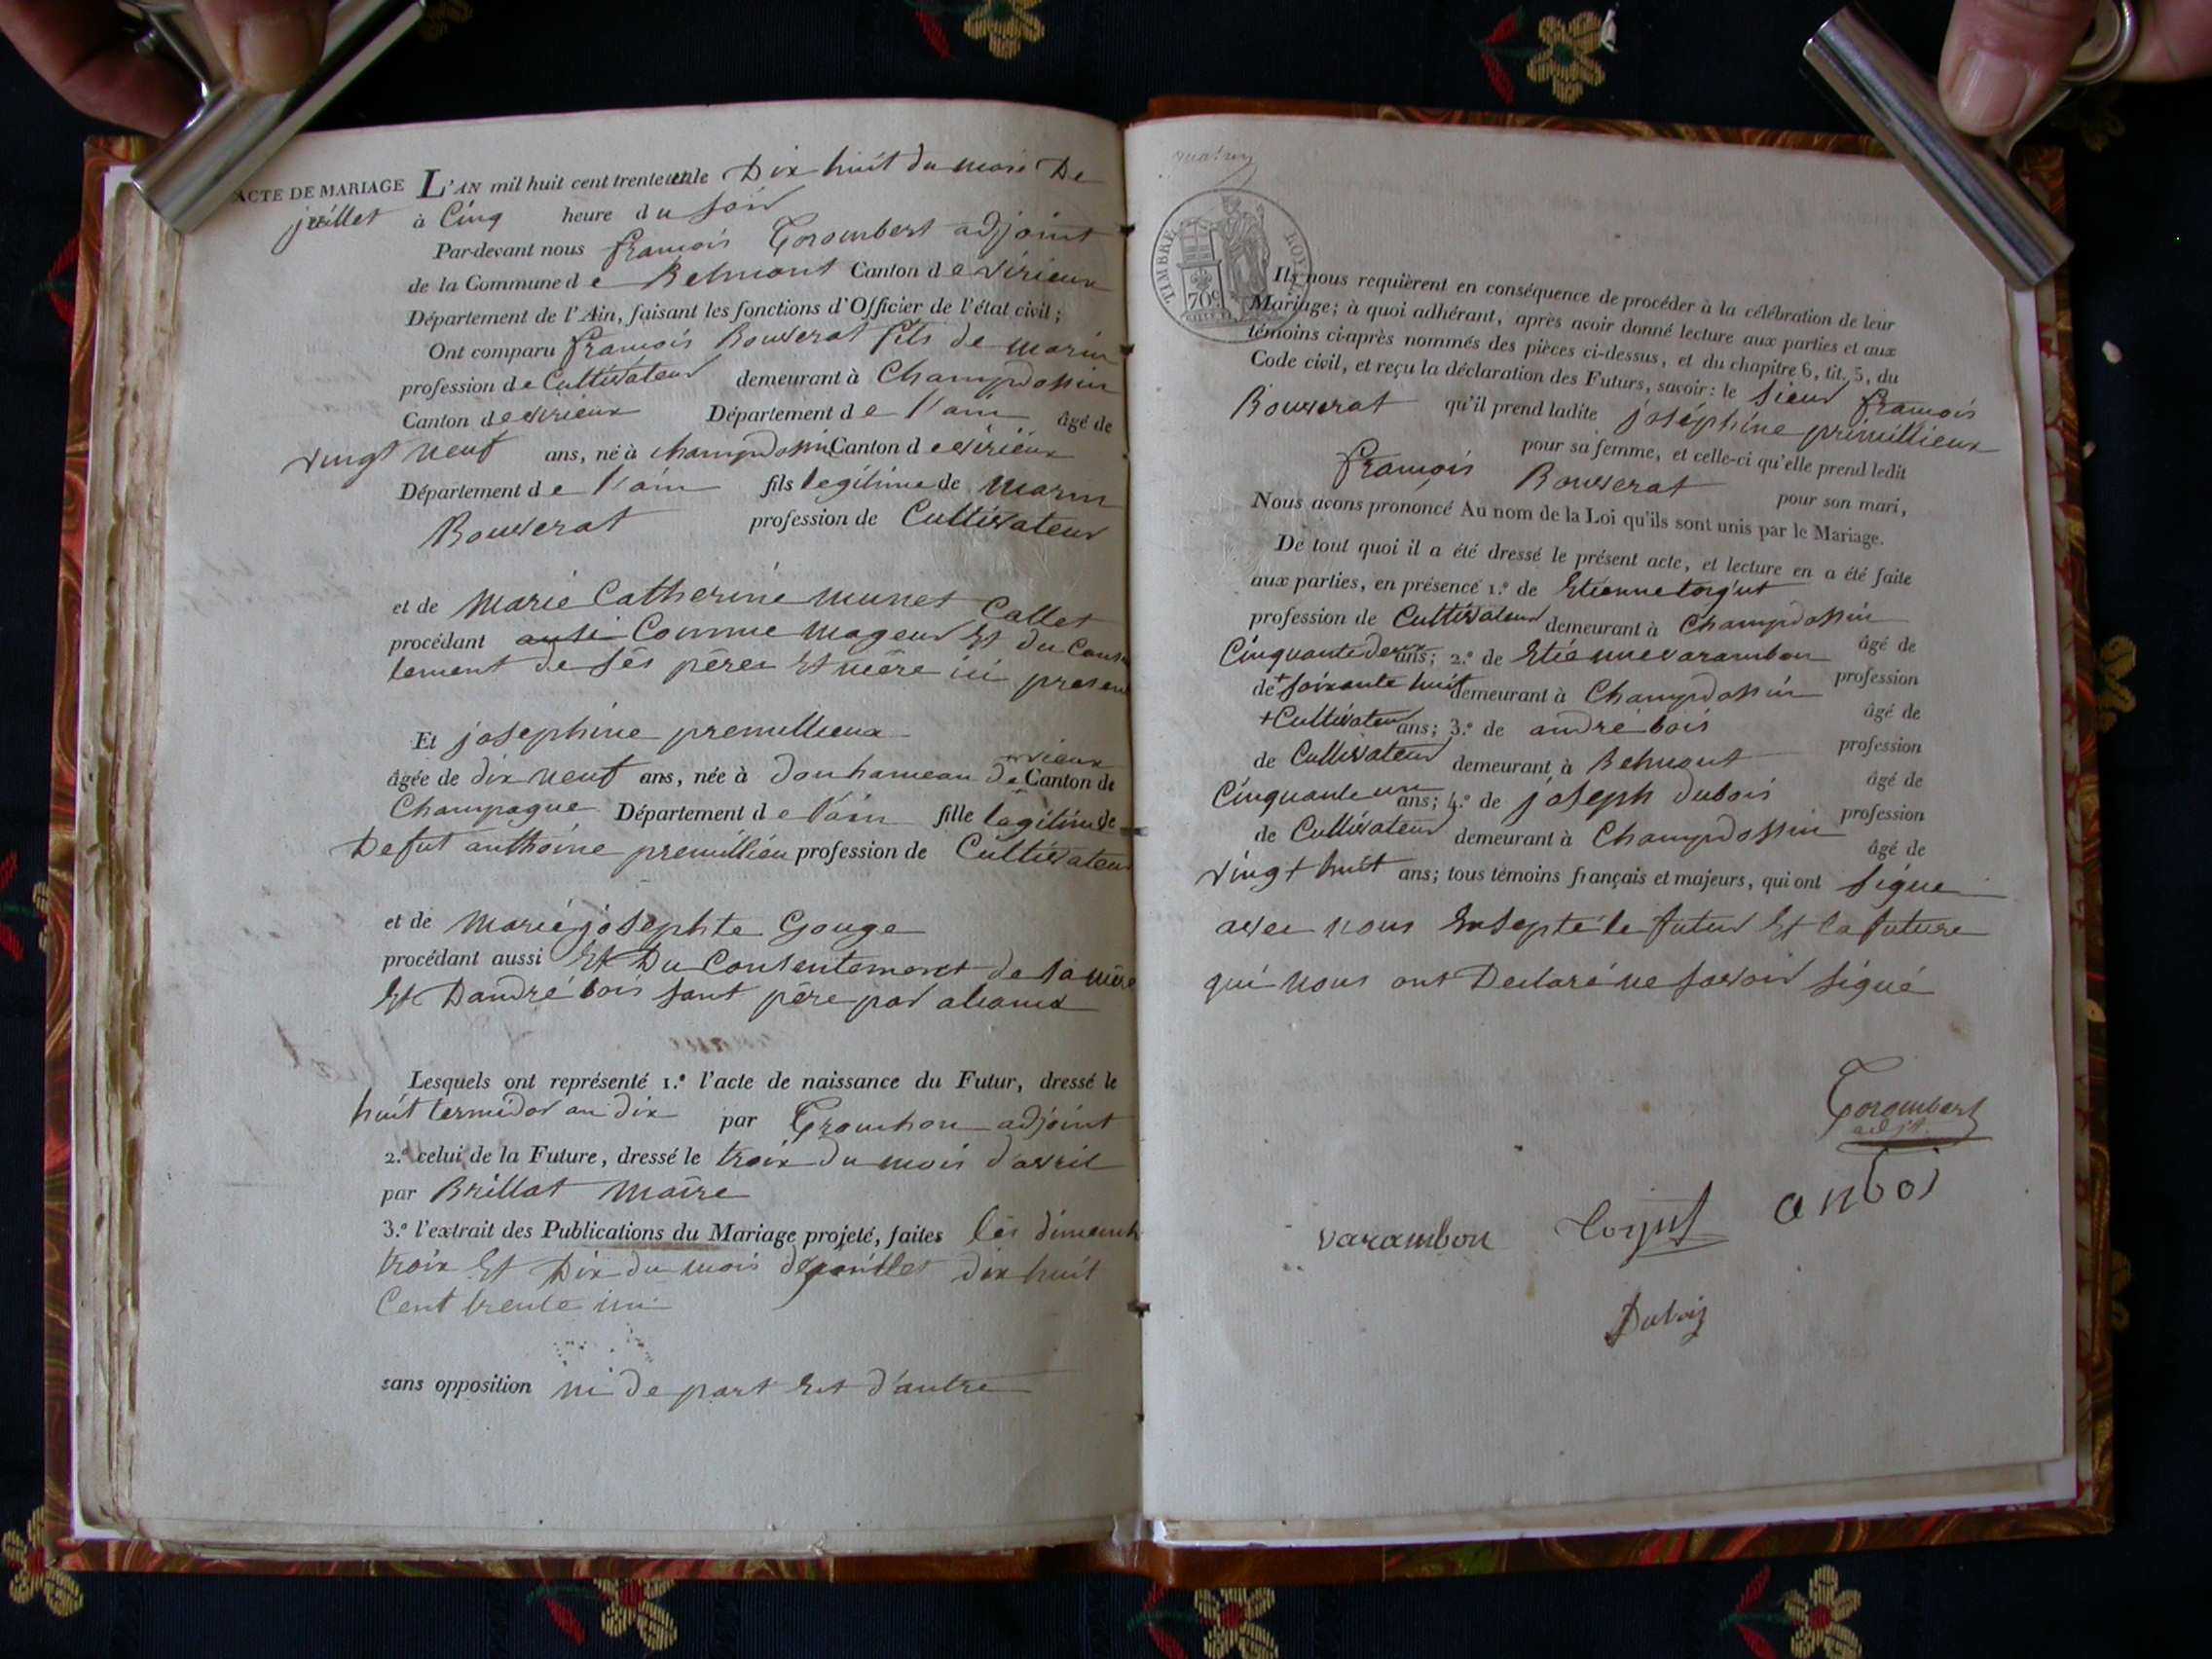 ACTE DE MARIAGE L'AN mil huit cent trente un le Dix huit du mois De
juillet à Cinq heure du soir
Par-devant nous françois Gorombert adjoint
de la Commune de Belmont Canton de virieux
Département de l'Ain, faisant les fonctions d'Officier de l'état civil;
Ont comparu françois Bouverat fils de marin
profession de Cultivateur demeurant à Champdossin
Canton de virieux Département de l'ain âgé de
vingt neuf ans, né à champdossin Canton de virieux
Département de l'ain fils legitime de marin
Bouverat profession de Cultivateur
et de Marie Catherine munet Callet
procédant ausi Comme mageur Et du Consen
tement de sés pérer Et mére ici presen
Et josephine premillieux
vieux
âgée de dix neuf ans, née à don hameau de Canton de
Champagne Département de l'ain fille lagitime de
Defut anthoine premillieu profession de Cultivateur
et de marie josephte Gouge
procédant aussi Et Du Consentement de sa mère
Et Dandré bois sont pére par aliance
Lesquels ont représenté 1.º l'acte de naissance du Futur, dressé le
huit termidor an dix par Trouchon adjoint
2.º celui de la Future, dressé le troix du mois d'avril
par Brillat maire
3.º l'extrait des Publications du Mariage projeté, faites lés dimanch
troix Et Dix du mois de juillet dix huit
Cent trente un
sans opposition ni de part Et d'autre
TIMBRE ROYAL
70c
Ils nous requièrent en conséquence de procéder à la célébration de leur
Mariage; à quoi adhérant, après avoir donné lecture aux parties et aux
témoins ci-après nommés des pièces ci-dessus, et du chapitre 6, tit. 5, du
Code civil, et reçu la déclaration des Futurs, savoir: le sieur françois
Bouverat qu'il prend ladite joséphine primillieux
pour sa femme, et celle-ci qu'elle prend ledit
françois Bouverat pour son mari,
Nous avons prononcé Au nom de la Loi qu'ils sont unis par le Mariage.
De tout quoi il a été dressé le présent acte, et lecture en a été faite
aux parties, en présence 1.º de Etienne torgut
profession de Cultivateur demeurant à Champdossin
âgé de
Cinquante deux ans; 2.º de Etienne varambon
profession
de + soixante huit demeurant à Champdossin
âgé de
+ Cultivateur ans; 3.º de andré bois
profession
de Cultivateur demeurant à Belmont
âgé de
Cinquante un ans; 4.º de joseph dubois
profession
de Cultivateur demeurant à Champdossin
âgé de
vingt huit ans; tous témoins français et majeurs, qui ont signe
avec nous Exsepté le futur Et la future
qui nous ont Declaré ne savoir signé
Gorombert
adjt.
anboi
varambon torgut
Duboiz